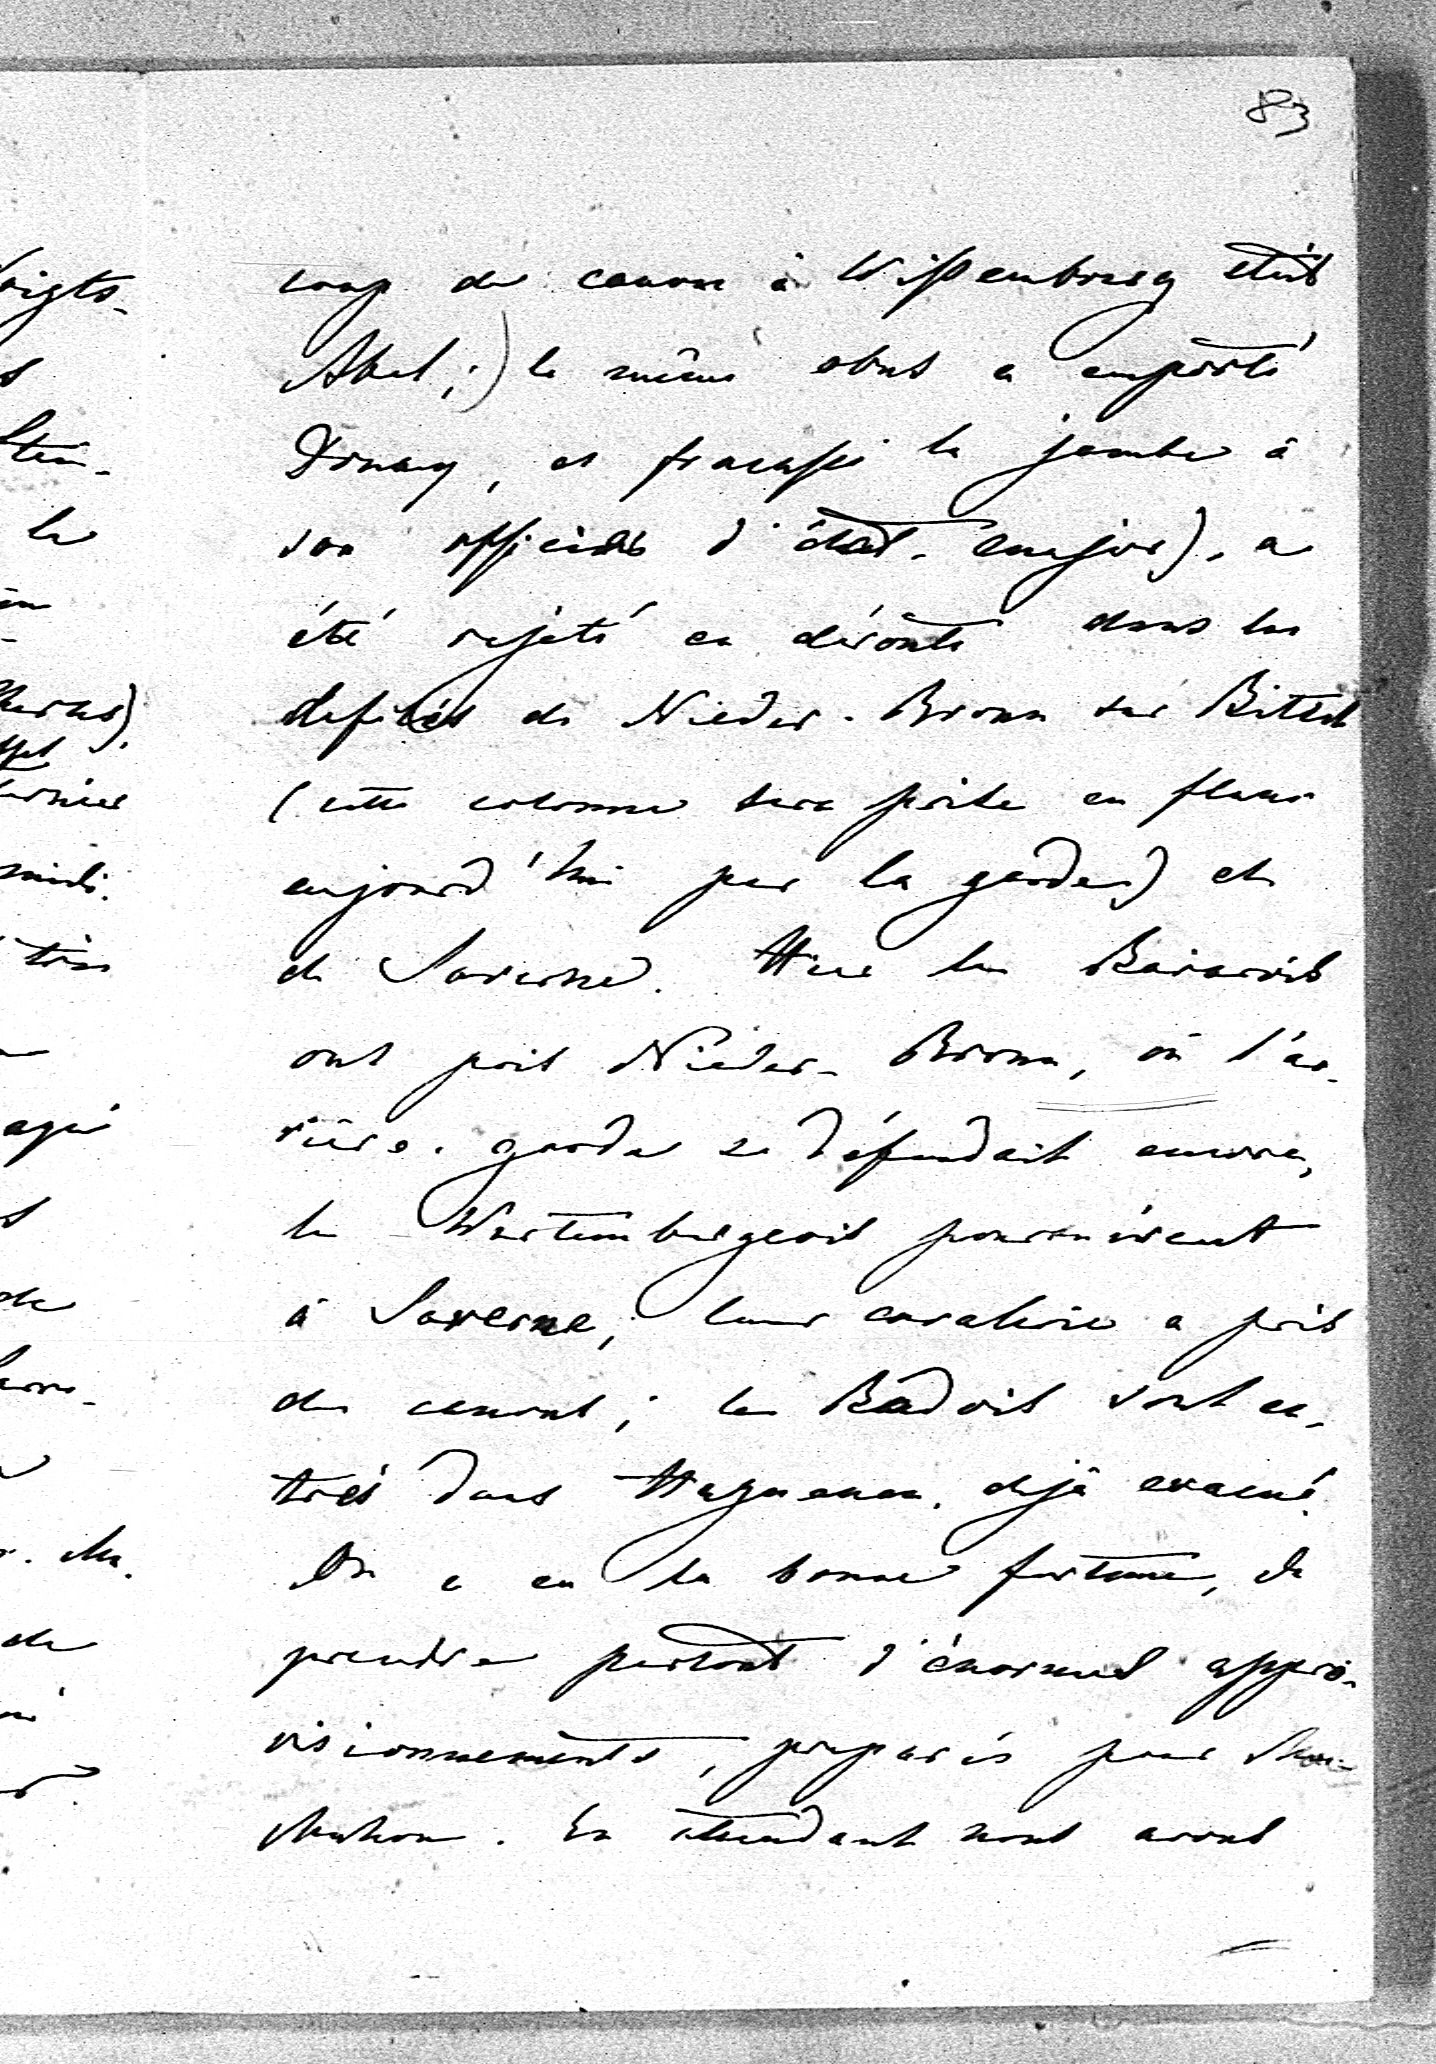 83
coup de canon à Wissembourg était
Abel;) le même obus a emporté
Douay, et fracassé la jambe à
son officier d'état-major), a
été rejeté en déroute dans les
defilés de Nieder-Bronn sur Bitsch
(cette colonne sera prise en flanc
aujourd'hui par la garde) et
de Saverne. Hier les Bavarois
ont pris Nieder-Bronn, où l'ar-
rière-garde se défendait encore,
les Wurtembergeois poursuivent
à Saverne; leur cavalerie a pris
des canons; les Badois sont en-
trés dans Haguenau, dejà evacué.
On a eu la bonne fortune, de
prendre partout d'énormes appro-
visionnements, preparés pour Mac-
Mahon. En attendant nous avons